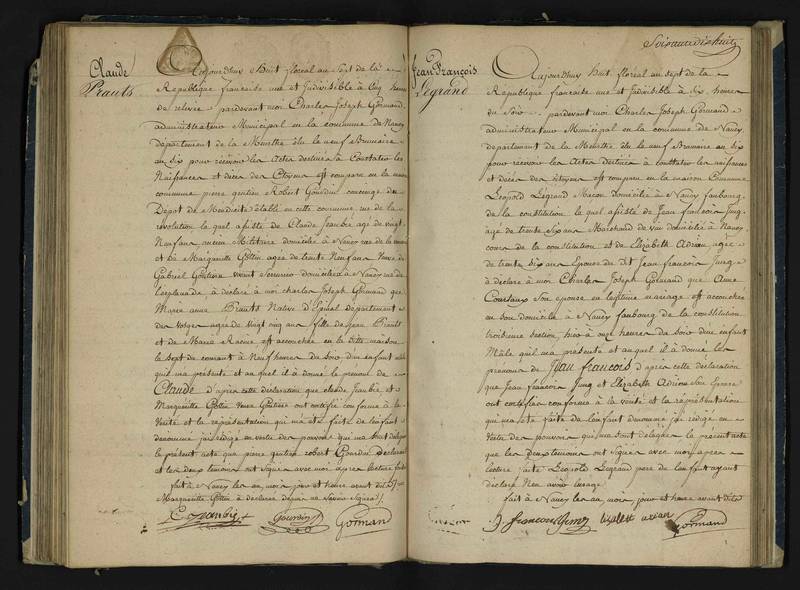 Claude
Prauts
Aujourdhuy Huit floréal an Sept de la
République française une et Indivisible à Cinq heures
de relevée pardevant moi Charles Joseph Gormand
administrateur Municipal en la commune de Nancy
Département de la Meurthe élu le neuf Brumaire
an six pour recevoir les Actes destinés à Constater les
Naissances et décès des Citoyens est comparu en la maison
commune pierre gentien Robert Gourdin concierge du
Depot de Mendicité établi en cette commune rue de la
révolution lequel assisté de Claude Jeanbié agé de vingt
Neuf ans ancien Militaire domicilié à Nancy rue de la
et de Marguerite Gottin agée de trente Neuf ans Veuve de
Gabriel Goutiere vivant Serrurier domiciliée à Nancy rue de
l'esplanade, à déclaré à moi charles Joseph Gormand que
Marie anne Prauts Native d'Epinal département
des Vosges agée de Vingt cinq ans fille de Jean Prauts
et de Marie Racine est accouchée en la ditte maison
le sept du courant à Neuf heures du soir d'un enfant mâle
qu'il m'a présenté et auquel il à donné le prenom de
Claude d'après cette déclaration que claude Jeanbié et
Marguerite Gottin Veuve Goutiere ont certifié conforme à la
Vérité et la représentation qui m'a été faite de l'enfant
denommé j'ai rédigé en vertu des pouvoirs qui me sont délégués
le présent acte que pierre gentien robert Gourdin déclarant
et les deux temoins ont signés avec moi après lecture faite
fait à Nancy les an, mois jour et heure avant dits
Marguerite Gottin à déclaré de ne savoir signer
C Jeanbié
Gourdin
Gormand
Soixante dix huit
Jean François
Legrand
Aujourdhuy huit floréal an sept de la
République française une et Indivisible à six heures
du Soir, pardevant moi Charles Joseph Gormand
administrateur Municipal en la commune de Nancy,
departement de la Meurthe élu le neuf Brumaire an six
pour recevoir les Actes destinés à constater les naissances
et décès des citoyens est comparu en la maison Commune
Léopold Légrand Macon domicilié à Nancy faubourg
de la constitution le quel assisté de Jean francois Jung
agé de trente six ans Marchand de vin domicilié à Nancy
cours de la constitution et de Elizabeth Adrian agée
de trente Six ans Epouse du dit Jean francois Jung
à déclaré à moi Charles Joseph Gormand que Anne
Coursaux Son epouse en legitime mariage est accouchée
en son domicile à Nancy faubourg de la constitution
troisieme section, hier à onze heures du soir d'un enfant
Mâle qu'il m'a présenté et auquel il à donné les
prenoms de Jean françois d'apres cette declaration
que Jean francois Jung et Elizabeth Adrian Son Epouse
ont certifiés conforme à la verité et la représentation
qui m'a été faite de l'enfant denommé j'ai rédigé en
Vertu des pouvoirs qui me sont délégués le present acte
que les deux temoins ont signés avec moi après
lecture faite Léopold Legrand pere de l'enfant ayant
déclaré N'en avoir l'usage
fait à Nancy les an, mois jour et heure avant dits
J. francois Jung
elisabet adrian
Gormand